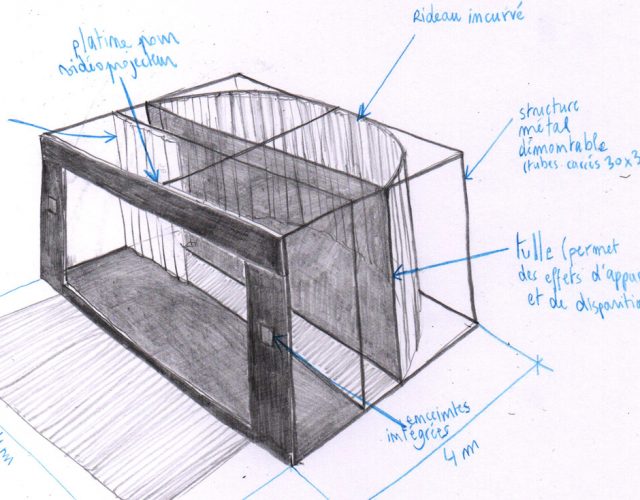 Rideau incurvé
platine pour
vidéoprojecteur
structure
métal
démontable
(tubes carrés 30x3
tulle (permet
des effets d'appa
et de disparition
enceintes
intégrées
4 m
m